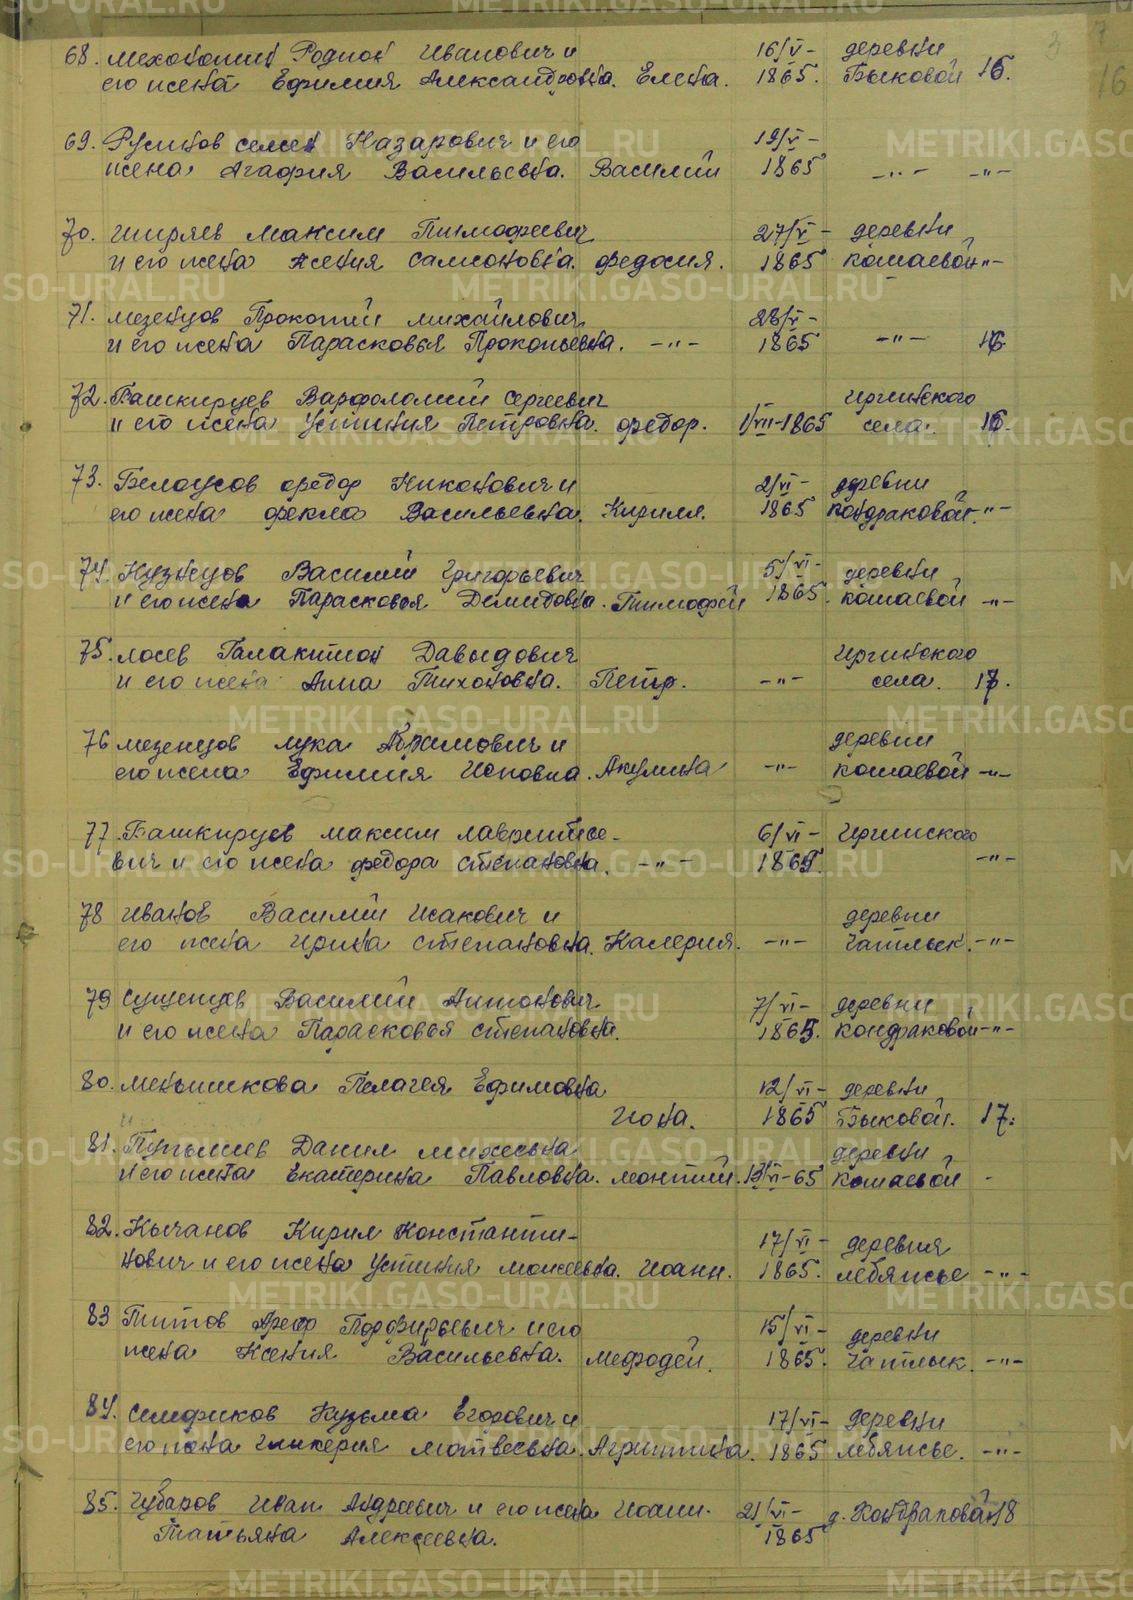 3 7
16
68. Мехоношин Родион Иванович и 16/V- деревни
его жена Ефимия Александровна. Елена. 1865. Быковой 16.
69. Русинов Семен Назарович и его 19/V-
жена Агафия Васильевна. Василий 1865 -„- -„-
70. Ширяев Максим Тимофеевич 27/V- деревни
и его жена Ксения Самсоновна. Федосия. 1865 Кошаевой -„-
71. Мезенцов Прокопий Михайлович 28/V-
и его жена Парасковья Прокопьевна. -„- 1865 -„- 16
72. Башкирцев Варфоломий Сергеевич Иргинского
и его жена Устиния Петровна. Федор. 1/VII-1865 села. 16.
73. Белоусов Федор Никонович и 2/VI- деревни
его жена Фекла Васильевна. Кирилл. 1865 Кондраковой -„-
74. Кузнецов Василий Григорьевич 5/VI- деревни
и его жена Парасковья Демидовна. Тимофей 1865. Кошаевой -„-
75. Лосев Галактион Давыдович Иргинского
и его жена Анна Тихоновна. Петр. -„- села. 17.
76 Мезенцов Лука Абрамович и деревни
его жена Ефимия Иповна. Акулина -„- Кошаевой -„-
77. Башкирцев Максим Лаврентье- 6/VI- Иргинского
вич и его жена Федора Степановна. -„- 1865. -„-
78 Иванов Василий Исакович и деревни
его жена Ирина Степановна. Калерия. -„- Чатлык. -„-
79 Сущенцев Василий Антонович 7/VI- деревни
и его жена Парасковья Степановна. 1865. Кондраковой -„-
80. Меньшикова Пелагея Ефимовна 12/VI- деревни
Иона. 1865 Быковой. 17.
81. Данил Михеевна деревни
и его жена Екатерина Павловна. Леонтий. 13/VI-65 Кошаевой -
82. Кычанов Кирил Константи- 17/VI- деревня
нович и его жена Устиния Моисеевна. Иоанн. 1865. Лебяжье -„-
83 Титов Ареф Порфирьевич и его 15/VI- деревни
жена Ксения Васильевна. Мефодей. 1865. Чатлык. -„-
84. Семфиков Кузьма Егорович и 17/VI- деревни
его жена Гликерия Матвеевна. Агриппина. 1865 Лебяжье. -„-
85. Чубаров Иван Андреевич и его жена Иоанн. 21/VI- д. Кондракова 18
Татьяна Алексеевна. 1865
METRIKI.GASO-URAL.RU